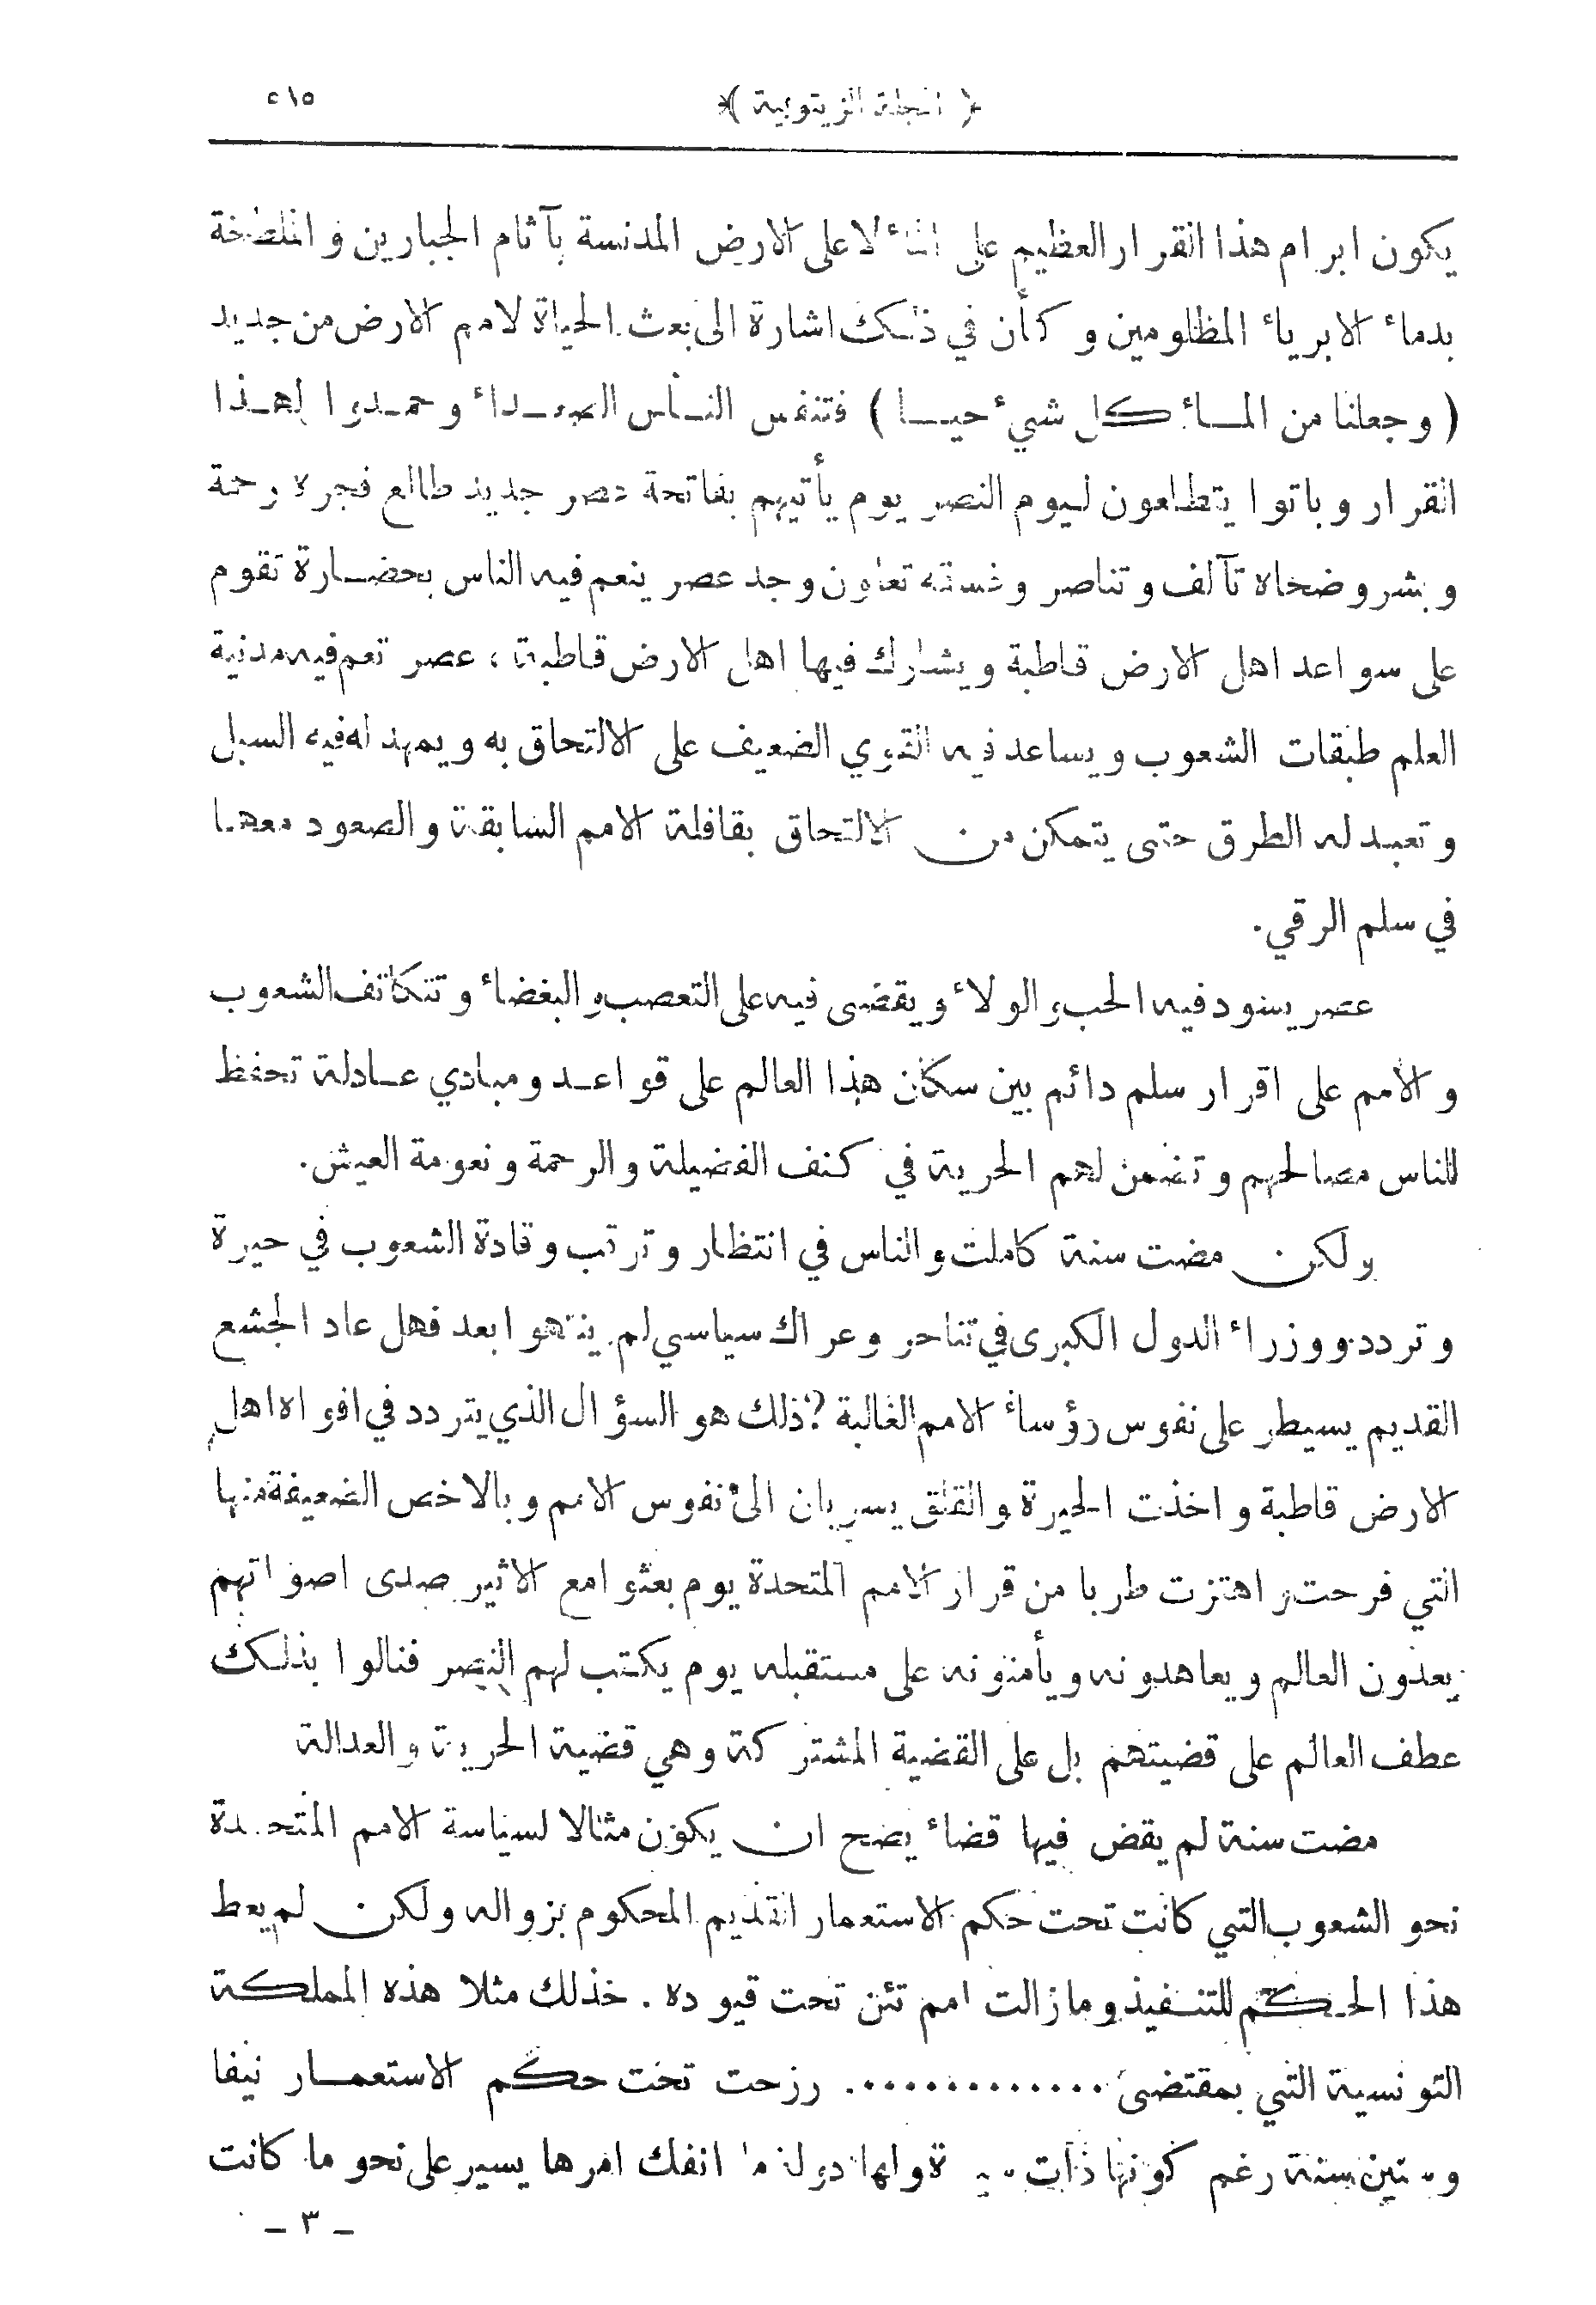 ﴿ المجلة الزيتونية ﴾ ٥١٥
يكون ابرام هذا القرار العظيم على المائ لا على الارض المدنسة بآثام الجبارين و الملطخة
بدمائ الابريائ المظلومين و كأن في ذلك اشارة الى بعث الحياة لامم الارض من جديد
( و جعلنا من المائ كل شيئ حيا ) فتنفس الناس الصعدائ و حمدوا لهذا
القرار و باتوا يتطلعون ليوم النصر يوم يأتيهم بفاتحة عصر جديد طالع فجره رحمة
و بشر و ضحاه تآلف و تناصر و تعاون و جد عصر ينعم فيه الناس بحضارة تقوم
على سواعد اهل الارض قاطبة و يشارك فيها اهل الارض قاطبة ، عصر تعم فيه مدنية
العلم طبقات الشعوب و يساعد فيه القوي الضعيف على الالتحاق به و يمهد له فيه السبل
و تعبد له الطرق حتى يتمكن من الالتحاق بقافلة الامم السابقة و الصعود معها
في سلم الرقي.
عصر يسود فيه الحب و الولائ و يقضى فيه على التعصب و البغضائ و تتكاتف الشعوب
و الامم على اقرار سلم دائم بين سكان هذا العالم على قواعد و مبادي عادلة تحفظ
للناس مصالحهم و تضمن لهم الحرية في كنف الفضيلة و الرحمة و نعومة العيش.
ولكن مضت سنة كاملة و الناس في انتظار و ترقب و قادة الشعوب في حيرة
و تردد و وزرائ الدول الكبرى في تناحر و عراك سياسي لم ينتهوا بعد فهل عاد الجشع
القديم يسيطر على نفوس رؤسائ الامم الغالبة ؟ ذلك هو السؤال الذي يتردد في افواه اهل
الارض قاطبة و اخذت الحيرة و القلق يسريان الى نفوس الامم و بالاخص الضعيفة منها
التي فرحت و اهتزت طربا من قرار الامم المتحدة يوم بعثوا مع الاثير صدى اصواتهم
يعدون العالم و يعاهدونه و يأمنونه على مستقبله يوم يكتب لهم النصر فنالوا بذلك
عطف العالم على قضيتهم بل على القضية المشتركة و هي قضية الحرية و العدالة
مضت سنة لم يقض فيها قضائ يصح ان يكون مثالا لسياسة الامم المتحدة
نحو الشعوب التي كانت تحت حكم الاستعمار القديم المحكوم بزواله ولكن لم يعط
هذا الحكم للتنفيذ و مازالت امم تئن تحت قيوده . خذلك مثلا هذه المملكة
التونسية التي بمقتضى ............. رزحت تحت حكم الاستعمار نيفا
و ستين سنة رغم كونها ذات و لها دولة ما انفك امرها يسير على نحو ما كانت
– ٣ –